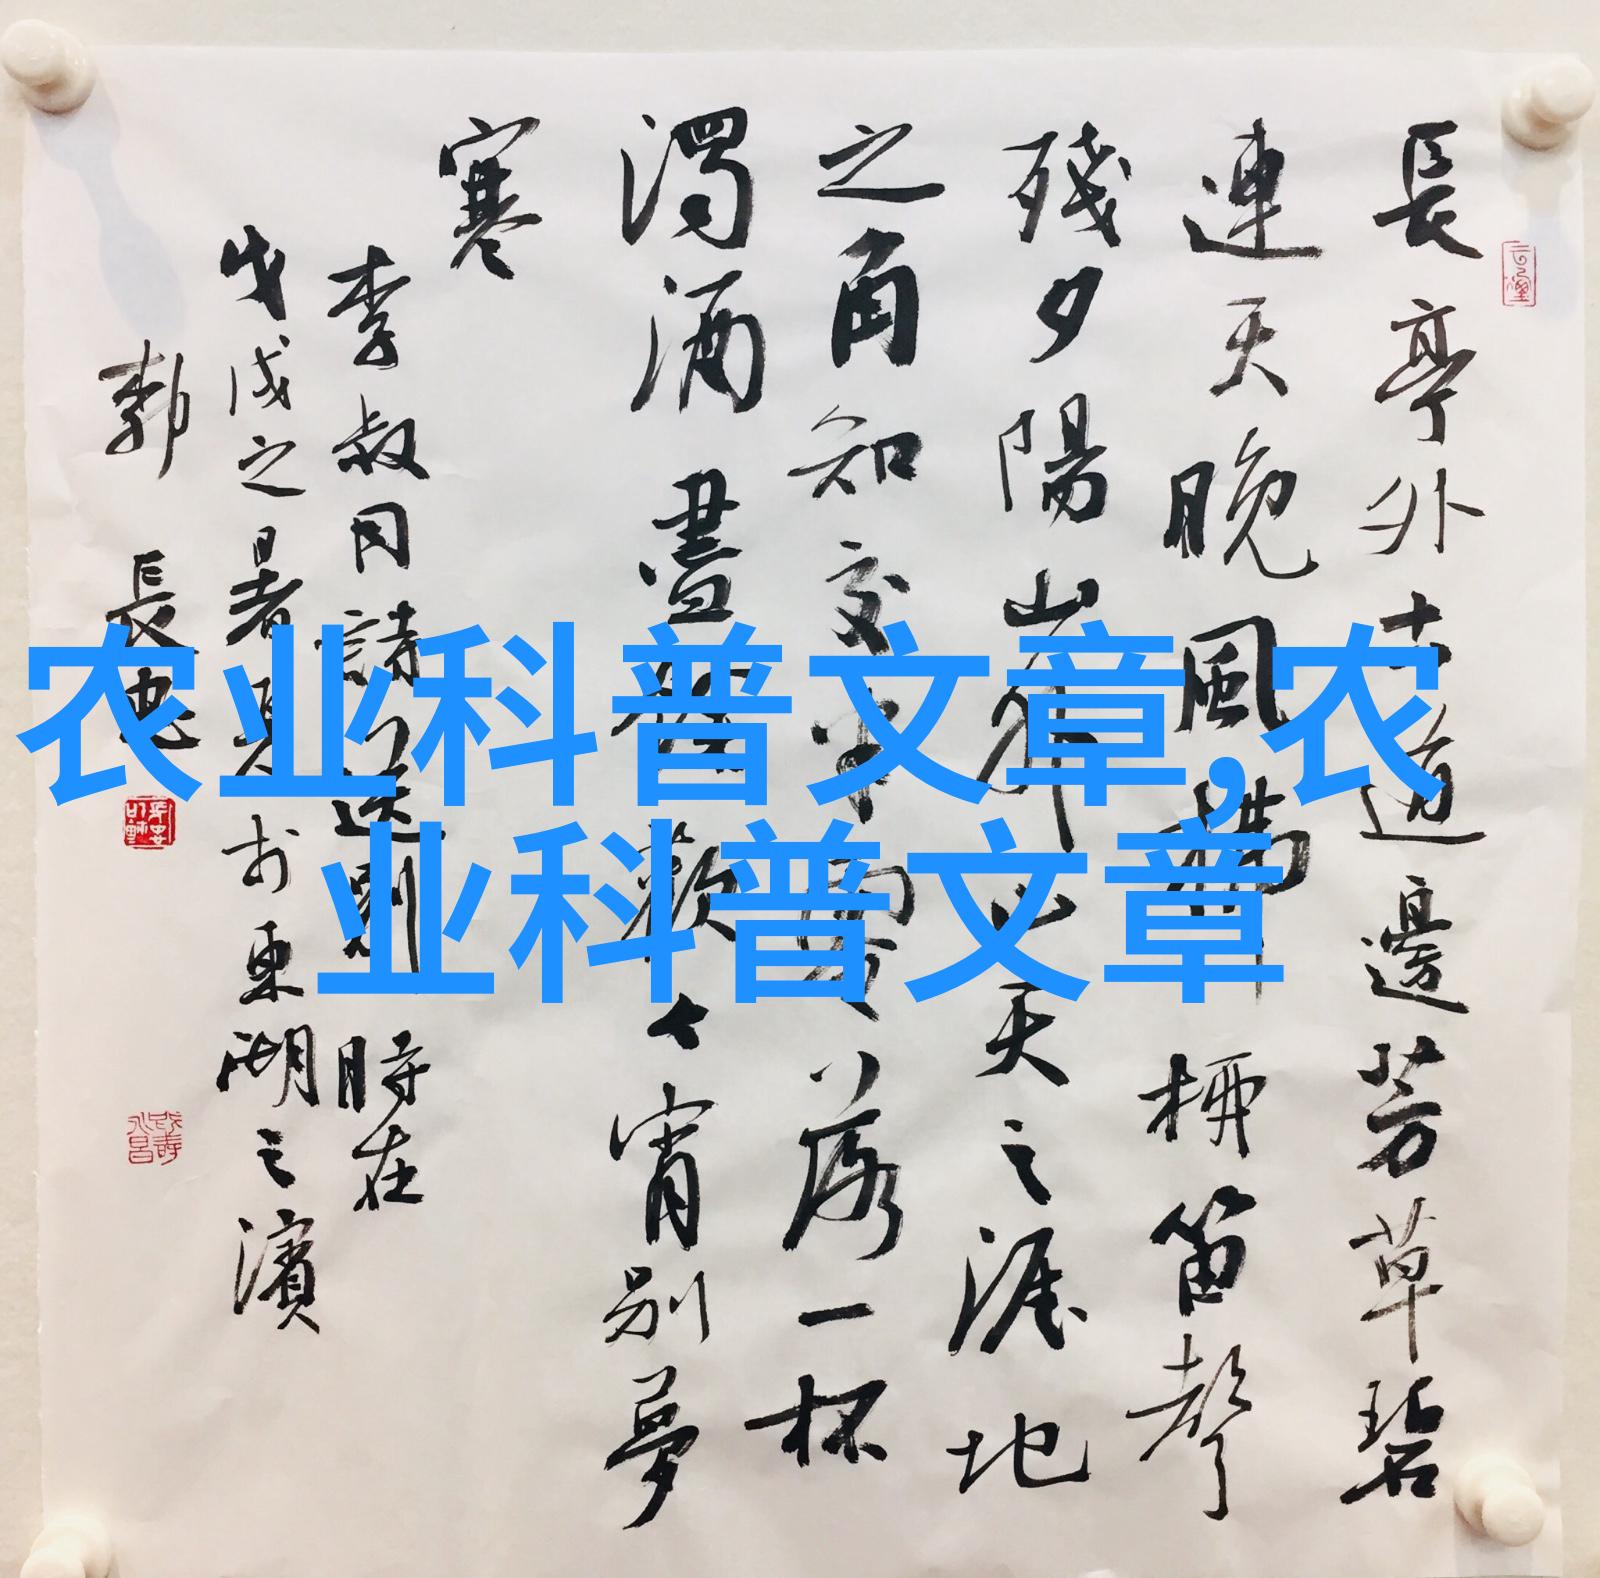 長亭外古道邊芳草碧
連天晚風拂柳笛聲
殘夕陽山外山天之涯地
之角知交半零落一杯
濁酒盡餘歡今宵別夢
寒
李叔同詩送別時在
戊戌之暑夏於東湖之濱
郭長忠
农业科普文章,农
业科普文章